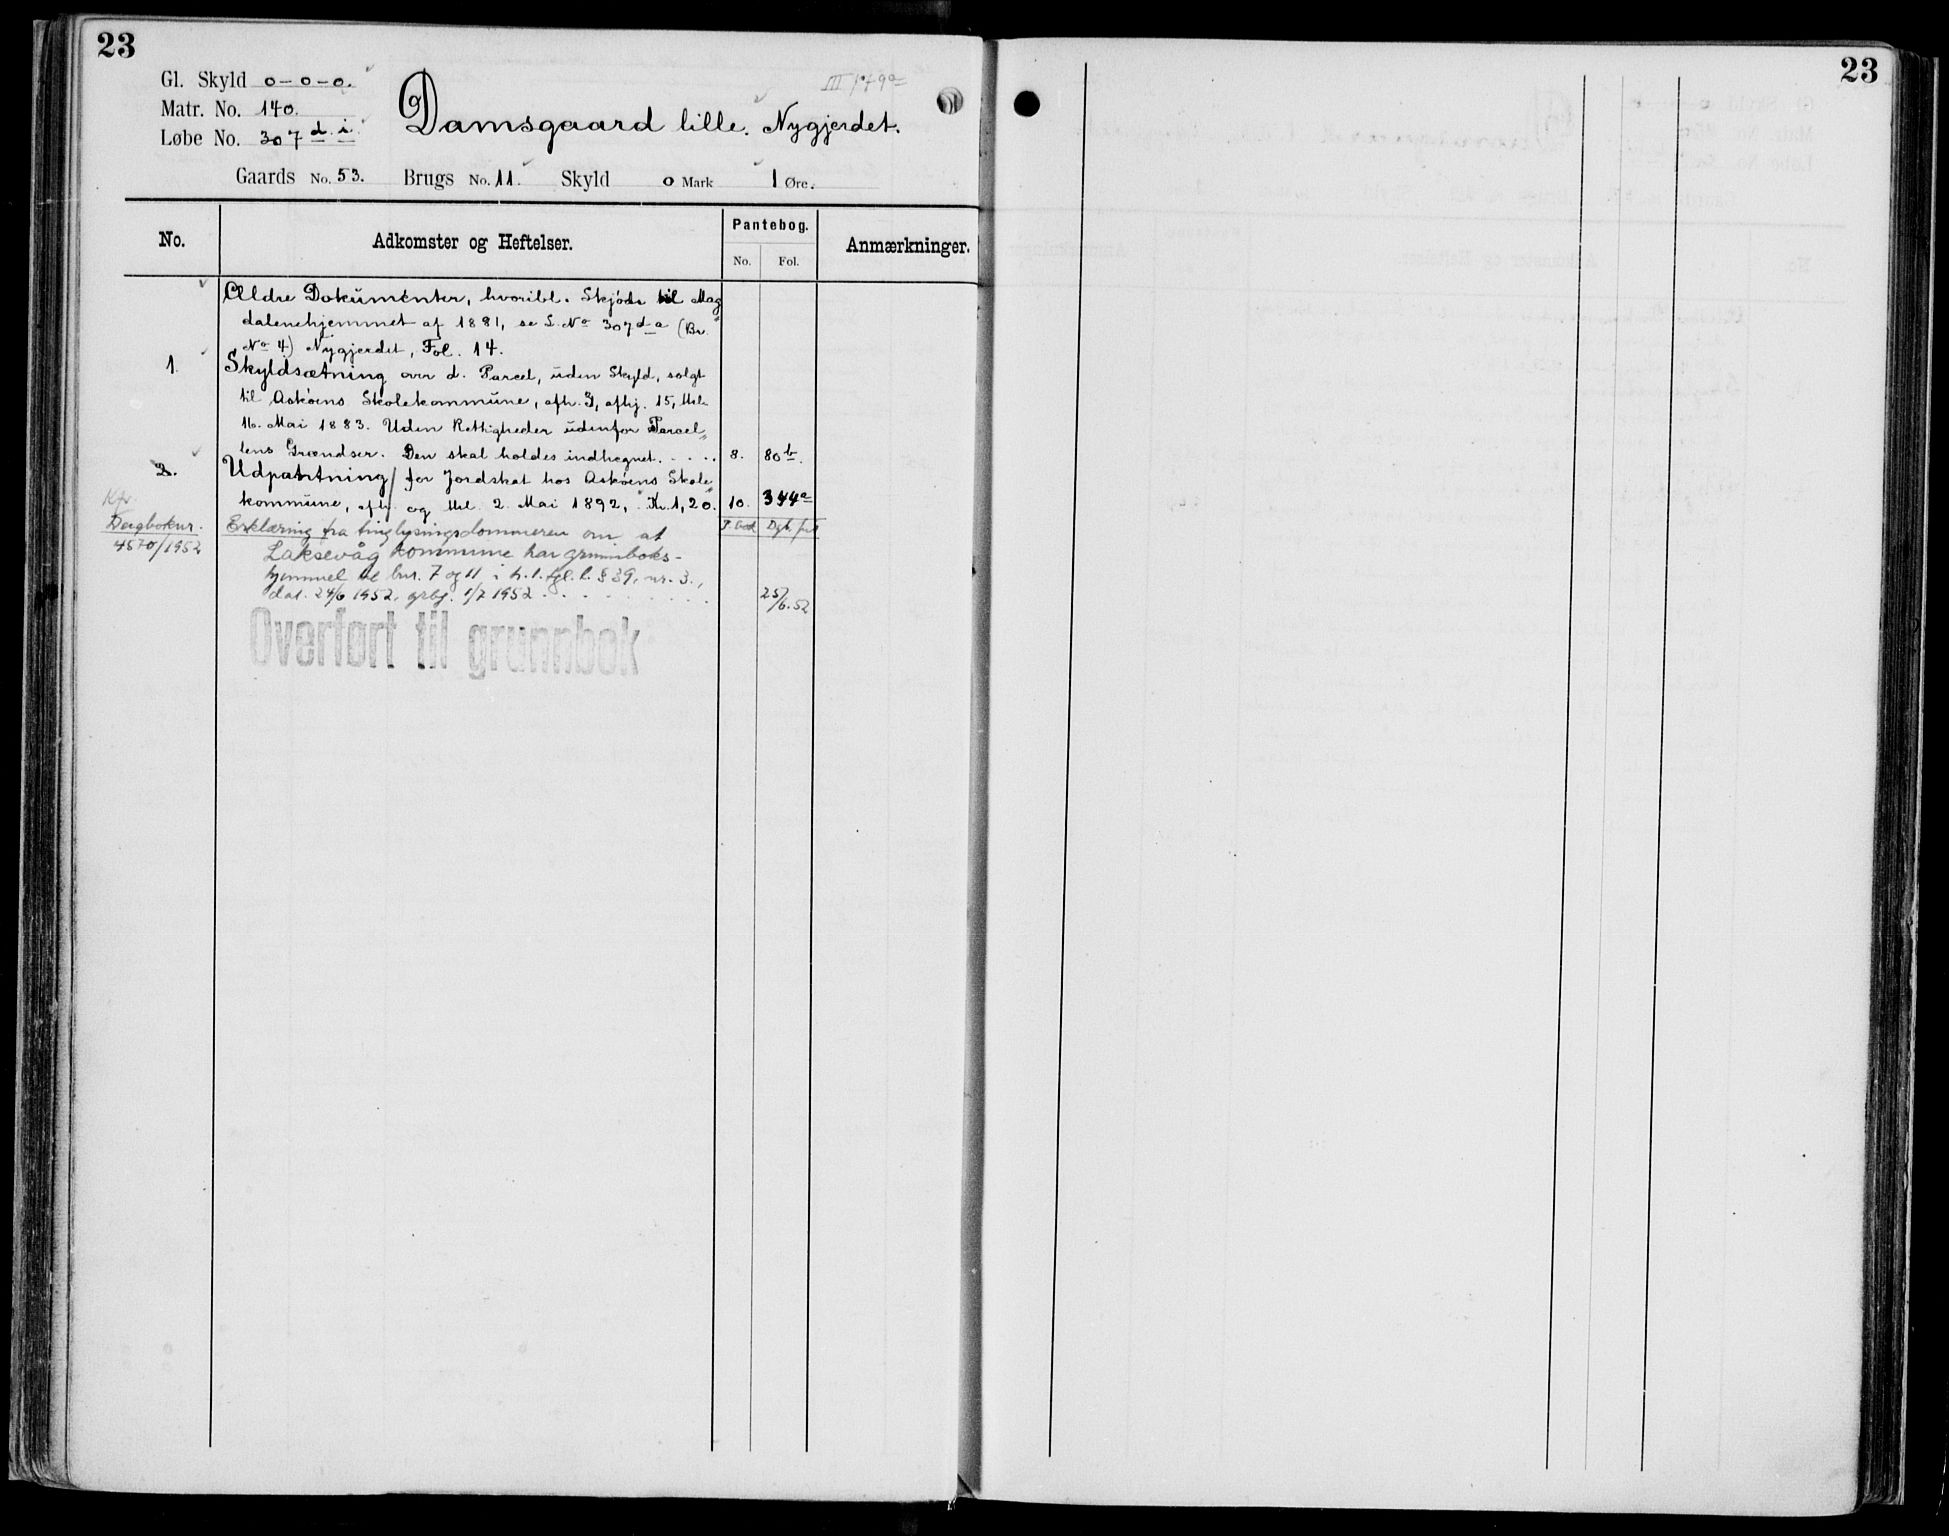 23
III 179a
Gl. Skyld 0-0-0.
Matr. No. 140.
Løbe No. 307 d i.
Damsgaard lille. Nygjerdet.
Gaards No. 53. Brugs No. 11. Skyld 0 Mark 1 Øre.
No. Adkomster og Heftelser. Pantebog. Anmærkninger.
No. Fol.
Ældre Dokumenter, hvoribl. Skjøde til Mag„
dalenehjemmet af 1881, se L. No 307 d a (Br.
No 4) Nygjerdet, Fol. 14.
1. Skyldsætning over d. Parcel, uden Skyld, solgt
til Askøens Skolekommune, afh. 3, afhj. 15, thl.
16. Mai 1883. Uden Rettigheder udenfor Parcel„
lens Grændser. Den skal holdes indhegnet. . . . . 8. 80b.
2. Udpantning for Jordskat hos Askøens Skole„
kommune, afh. og thl. 2. Mai 1892, Kr. 1,20. 10. 344a
Kfr.
Dagboknr.
4570/1952
Erklæring fra tinglysingsdommeren om at
Laksevåg kommune har grunnboks-
hjemmel til bnr. 7 og 11 i h. t. tgl. l. § 39, nr. 3.,
dat. 24/6 1952, 1/7 1952 . . . . . . . . 25/6.52
Overført til grunnbok
23